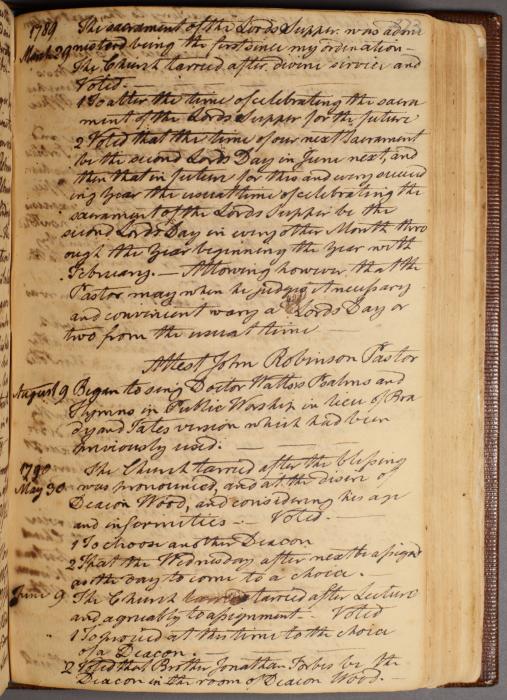 1789 The sacrament of the Lords Supper was admi
March 29 nisterd being the first since my ordination —
The Church tarried after divine service and
Voted. —
1 To alter the time of celebrating the sacra
ment of the Lords Supper for the future
2 Voted that the time of our next Sacrament
be the second Lords Day in June next, and
then that in future for this and every succeed
ing year the usual time of celebrating the
sacrament of the Lords Supper be the
second Lords Day in every other Month thro
ough the Year beginning the Year with
February. — Allowing however that the
Pastor may when he judges it necessary
and convenient vary a Lords Day or
two from the usual time
Attest John Robinson Pastor
August 9 Began to sing Doctor Watts's Psalms and
Hymns in Public Worship in lieu of Bra
dy and Tates version which had been
previously used.
1790 The Church tarried after the blessing
May 30 was pronounced, and at the desire of
Deacon Wood, and considering his age
and infirmities — Voted —
1 To choose another Deacon
2 That the Wednesday after next be assignd
as the day to come to a choice. —
June 9 The Church tarried after Lecture
and agreeably to assignment — Voted
1 To proceed at this time to the choice
of a Deacon. —
2 Voted that Brother Jonathan Forbes be the
Deacon in the room of Deacon Wood. —